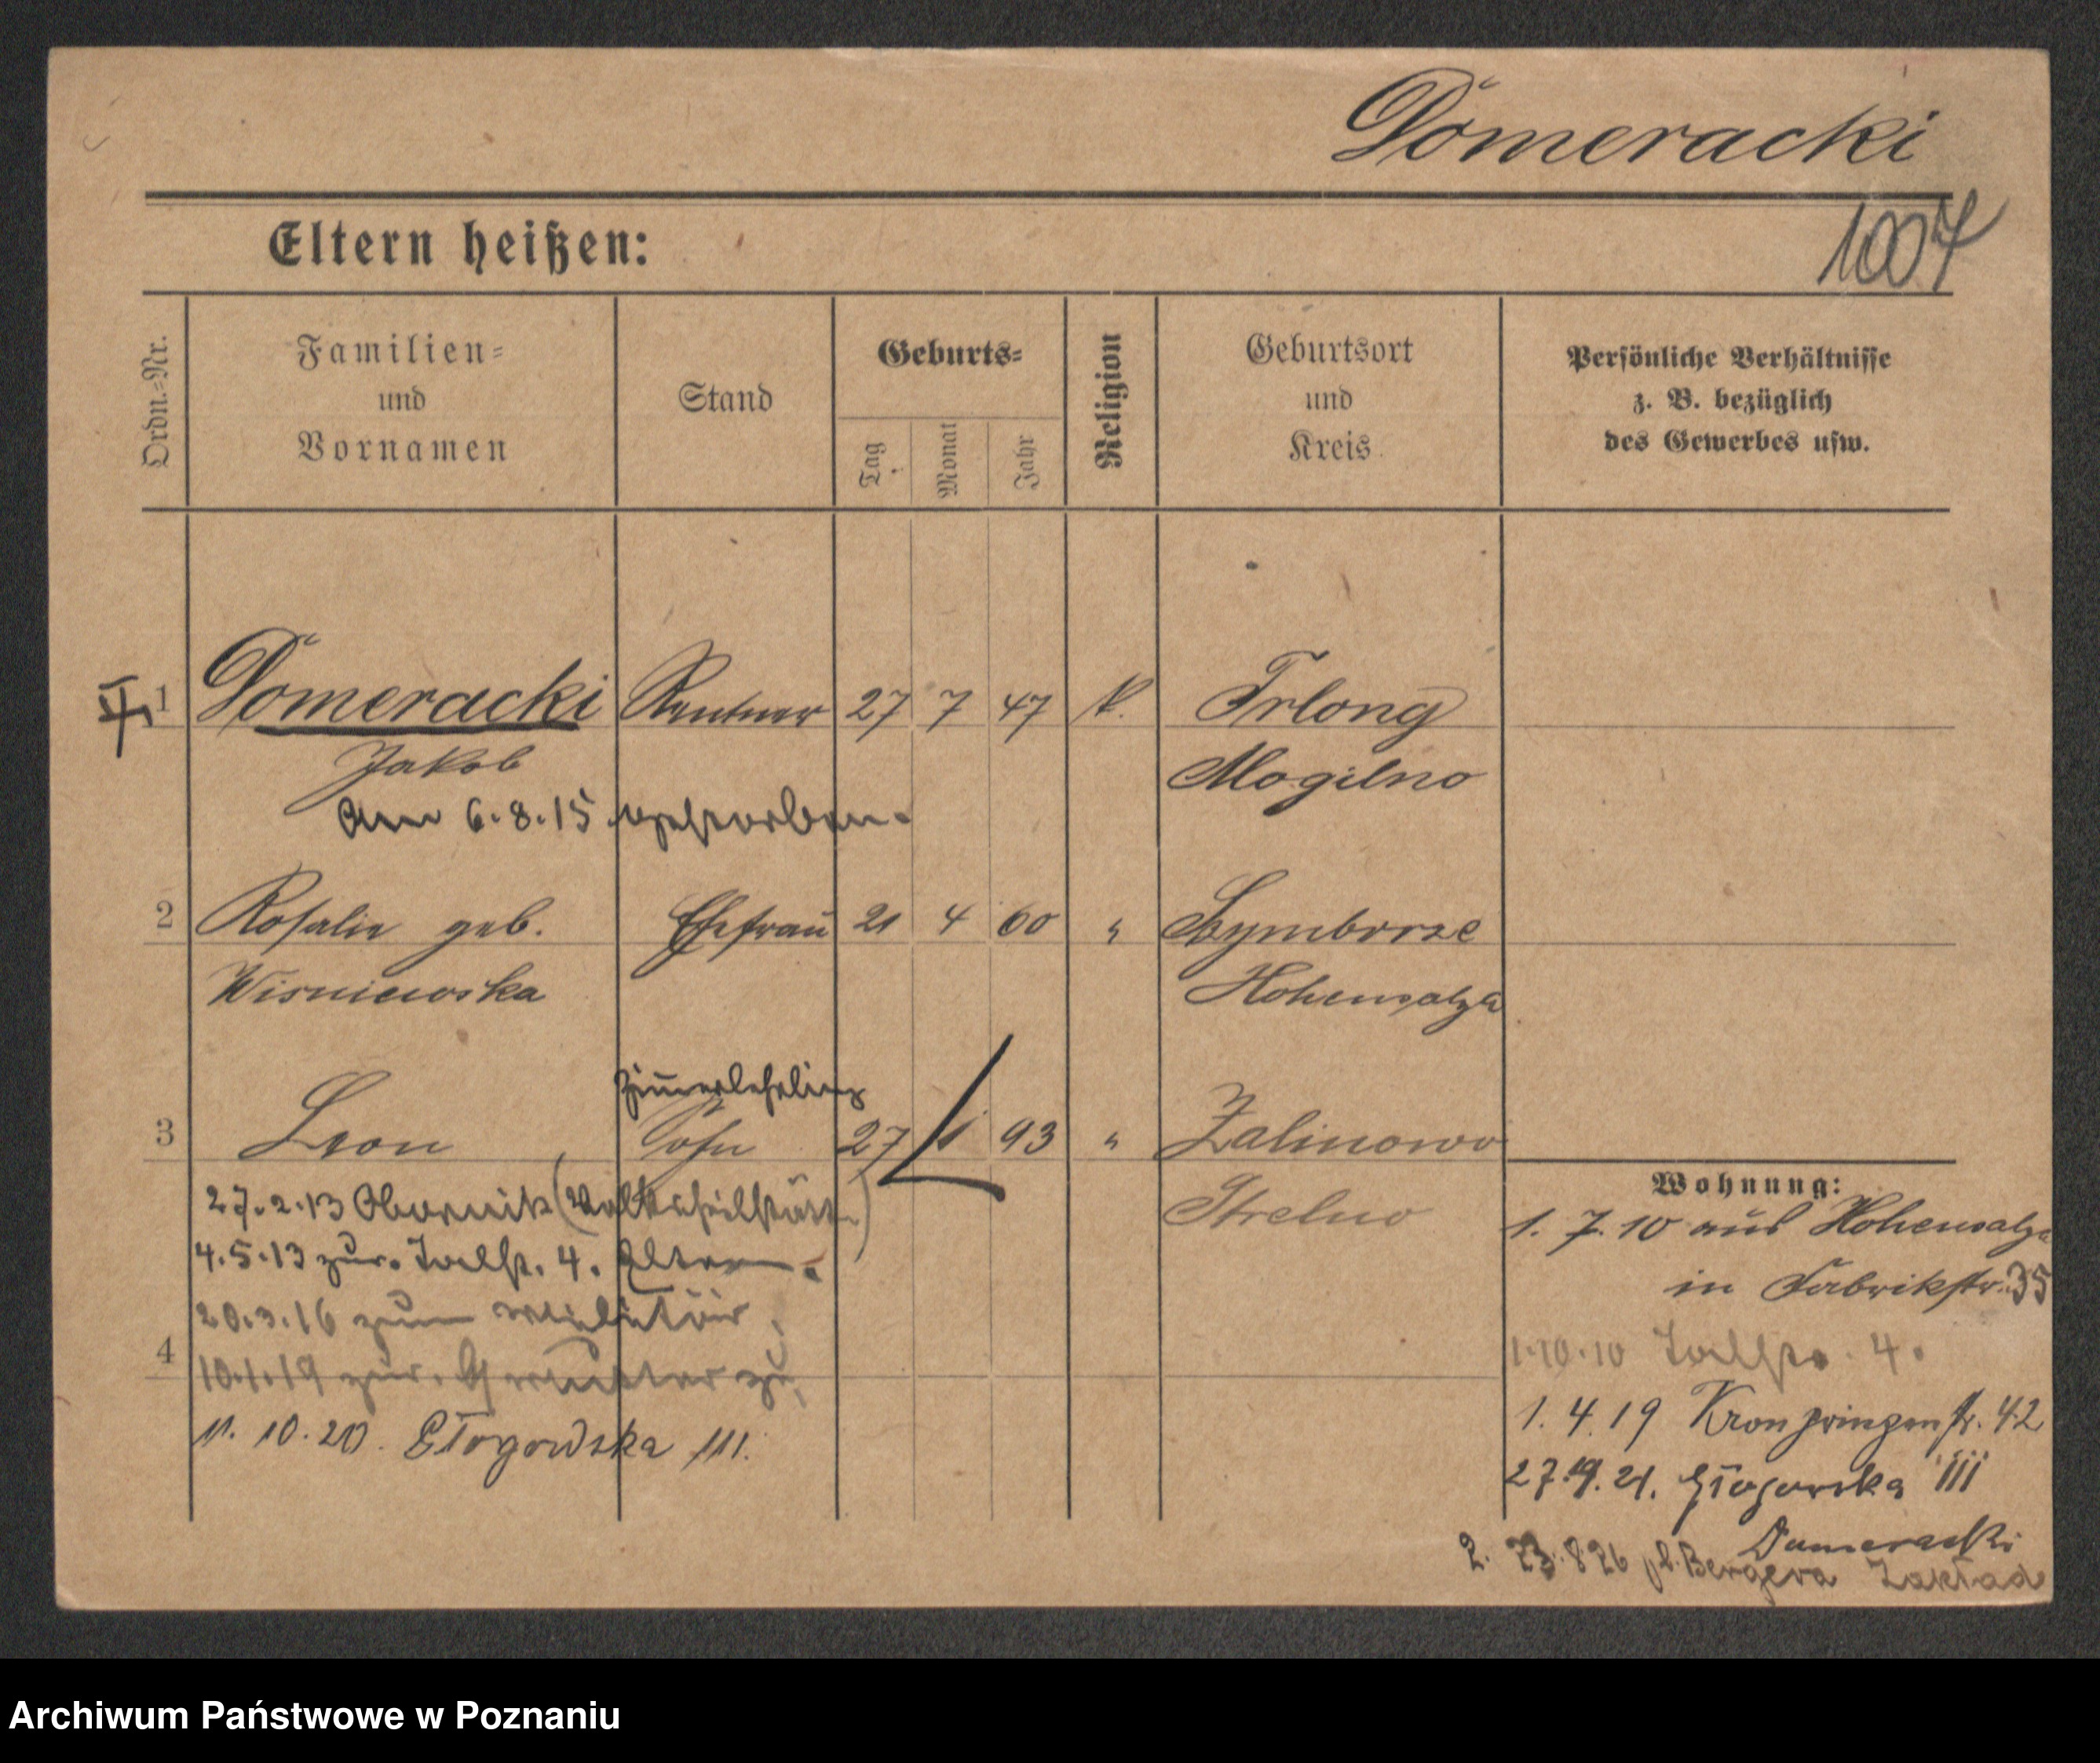 Domeracki
1007
Eltern heißen:
Ordn.=Nr.
Familien=
und
Vornamen
Stand
Geburts=
Tag
Monat
Jahr
Religion
Geburtsort
und
Kreis
Persönliche Verhältnisse
z. B. bezüglich
des Gewerbes usw.
1 Domeracki Rentner 27 7 47 k. Trlong
Jakob Mogilno
am 6.8.15 gestorben.
2 Rosalie geb. Ehefrau 21 4 60 " Szymborze
Wisniewska Hohensalza
Zimmerlehrling
3 Leon Sohn 27 93 " Zalinowo
Strelno
27.2.13 Obornik (Volksheilstätte)
4.5.13 zur. Talstr. 4. Eltern.
20.3.16 zum Militär
4
10.1.19 zur.
11.10.20. Głogowska 111.
Wohnung:
1.7.10 aus Hohensalza
in Fabrikstr. 35
1.10.10 Talstr. 4.
1.4.19 Kronprinzenstr. 42
27.9.21. Głogowska 111
Domeracki
2. 23.8 26 pl. Bergera Zakład
Archiwum Państwowe w Poznaniu